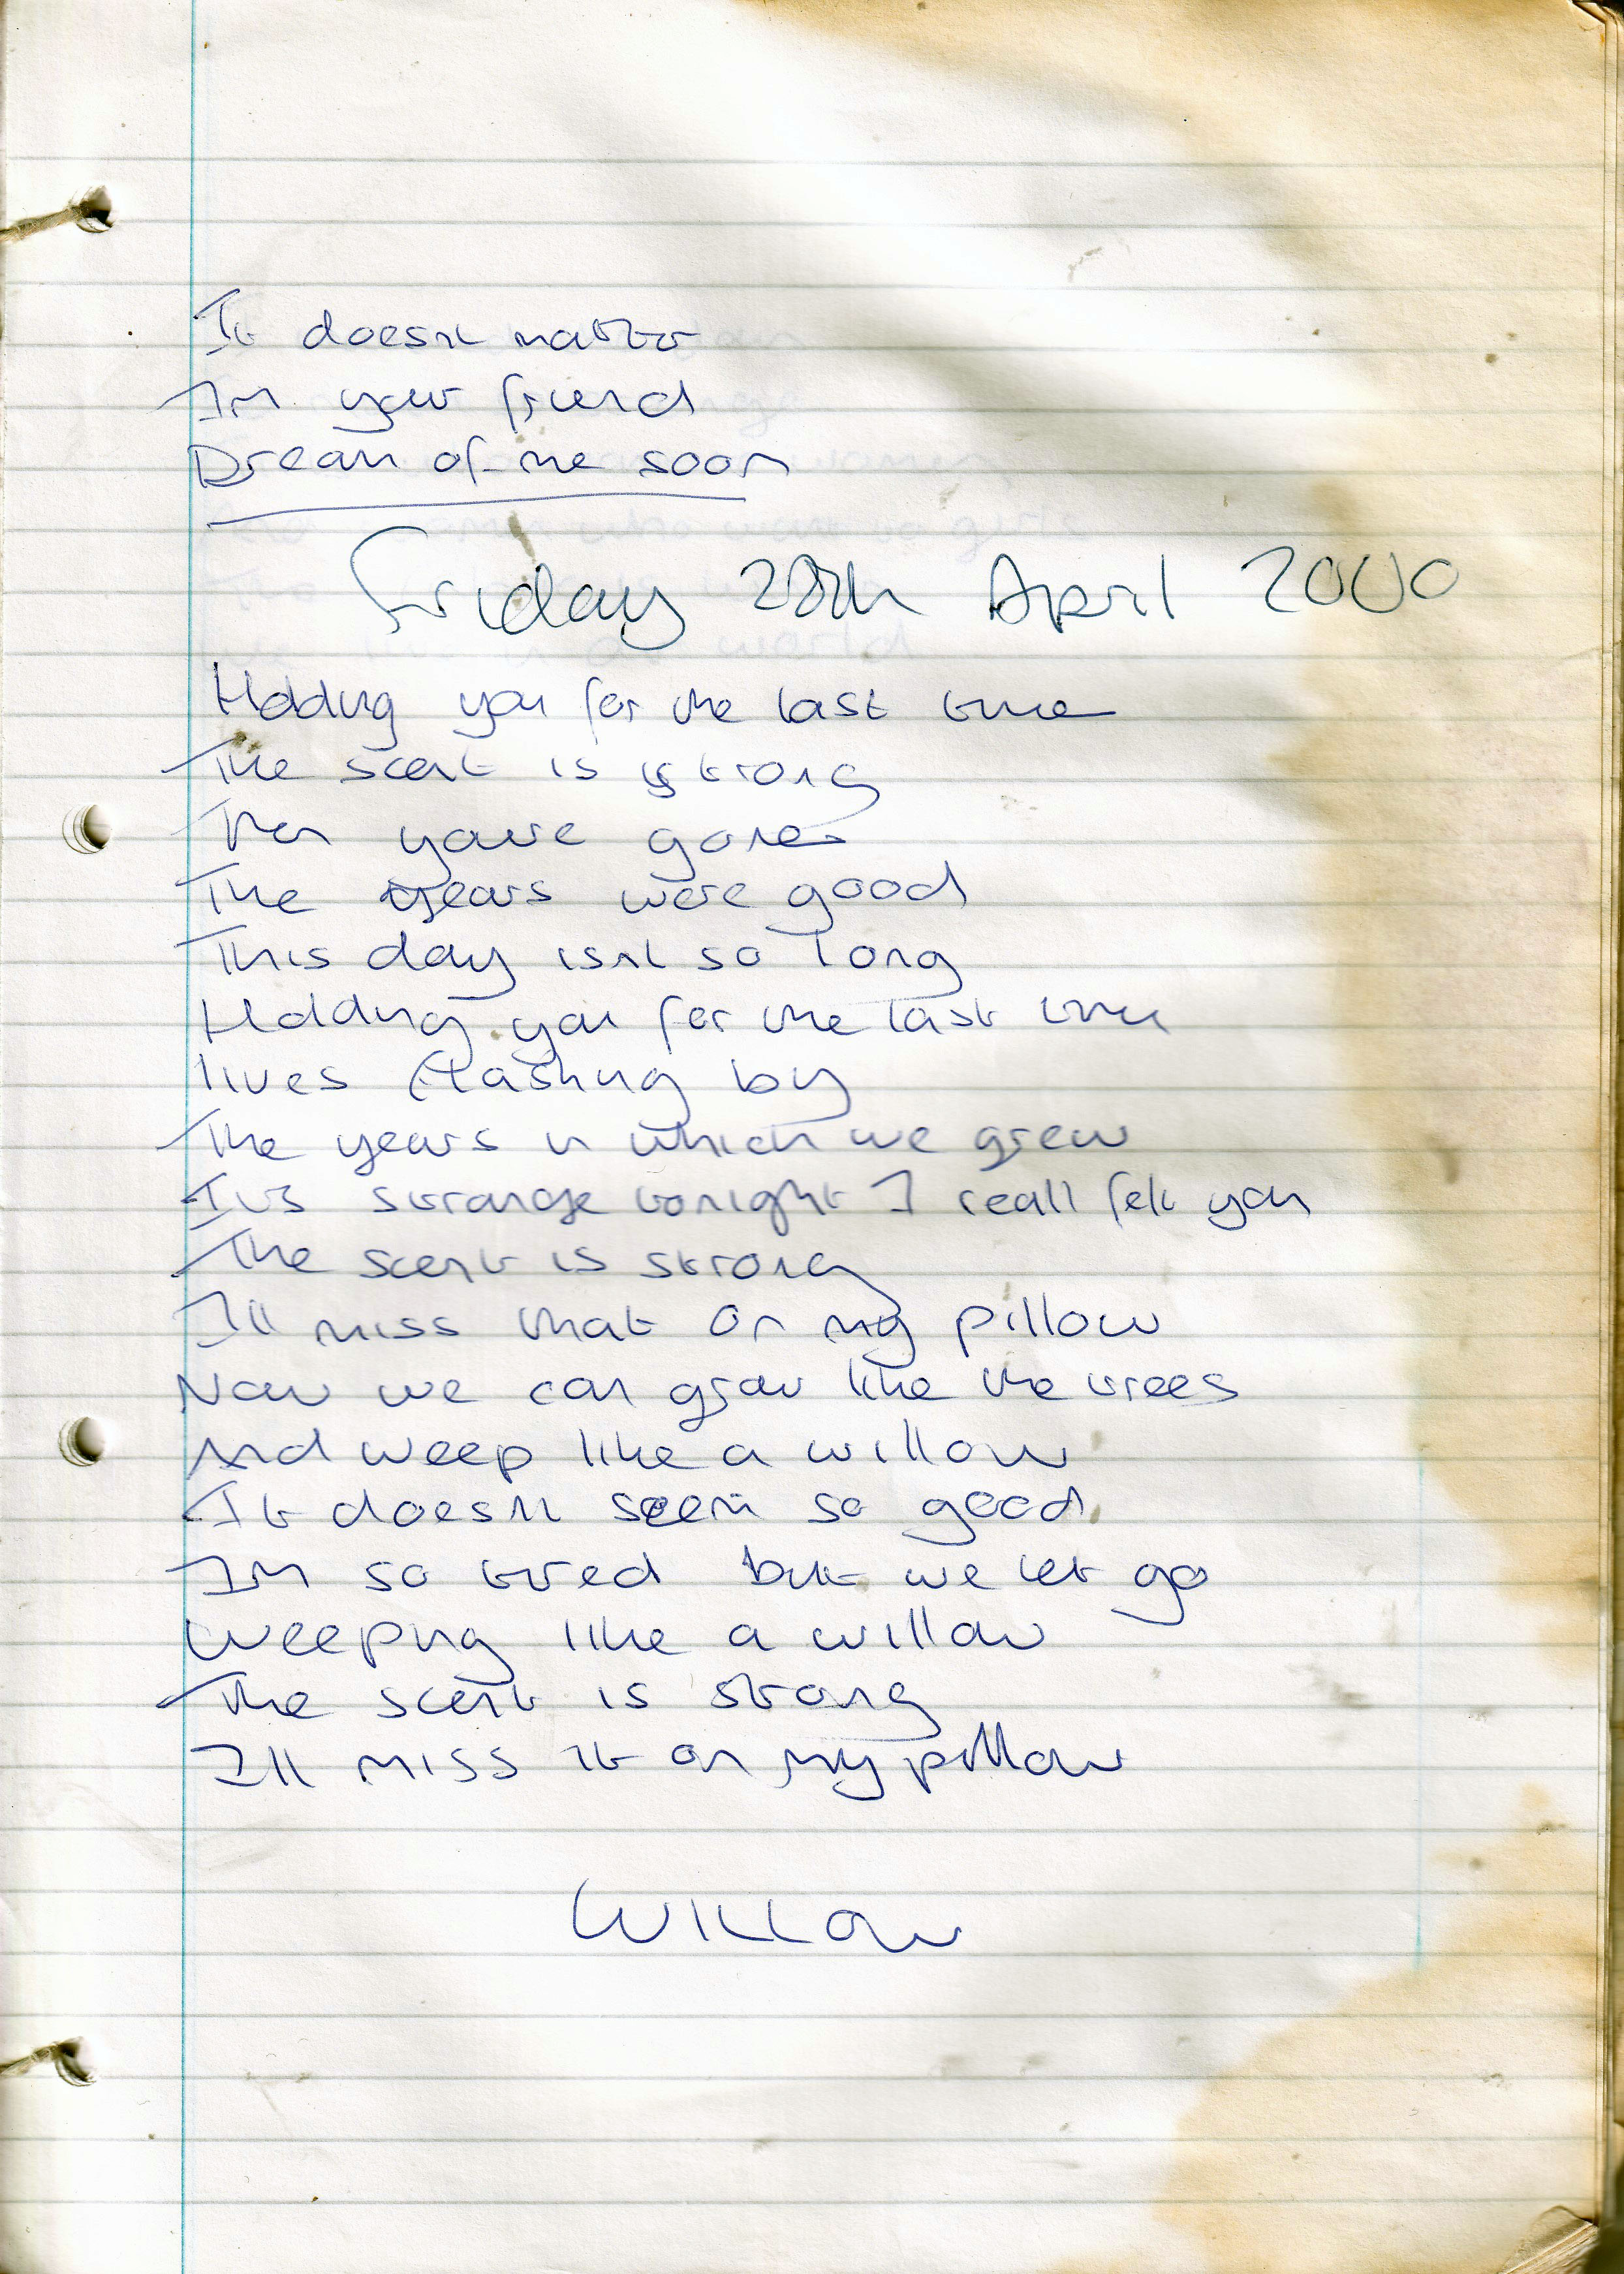 It doesnt matter
Im your friend
Dream of me soon
Friday 28th April 2000
Holding you for the last time
The scent is strong
Then youve gone
The years were good
This day isnt so long
Holding you for the last time
lives flashing by
The years in which we grew
Its strange tonight I reall felt you
The scent is strong
Ill miss that on my pillow
Now we can grow like the trees
And weep like a willow
It doesnt seem so good
Im so tired but we let go
Weeping like a willow
The scent is strong
Ill miss it on my pillow
WILLow